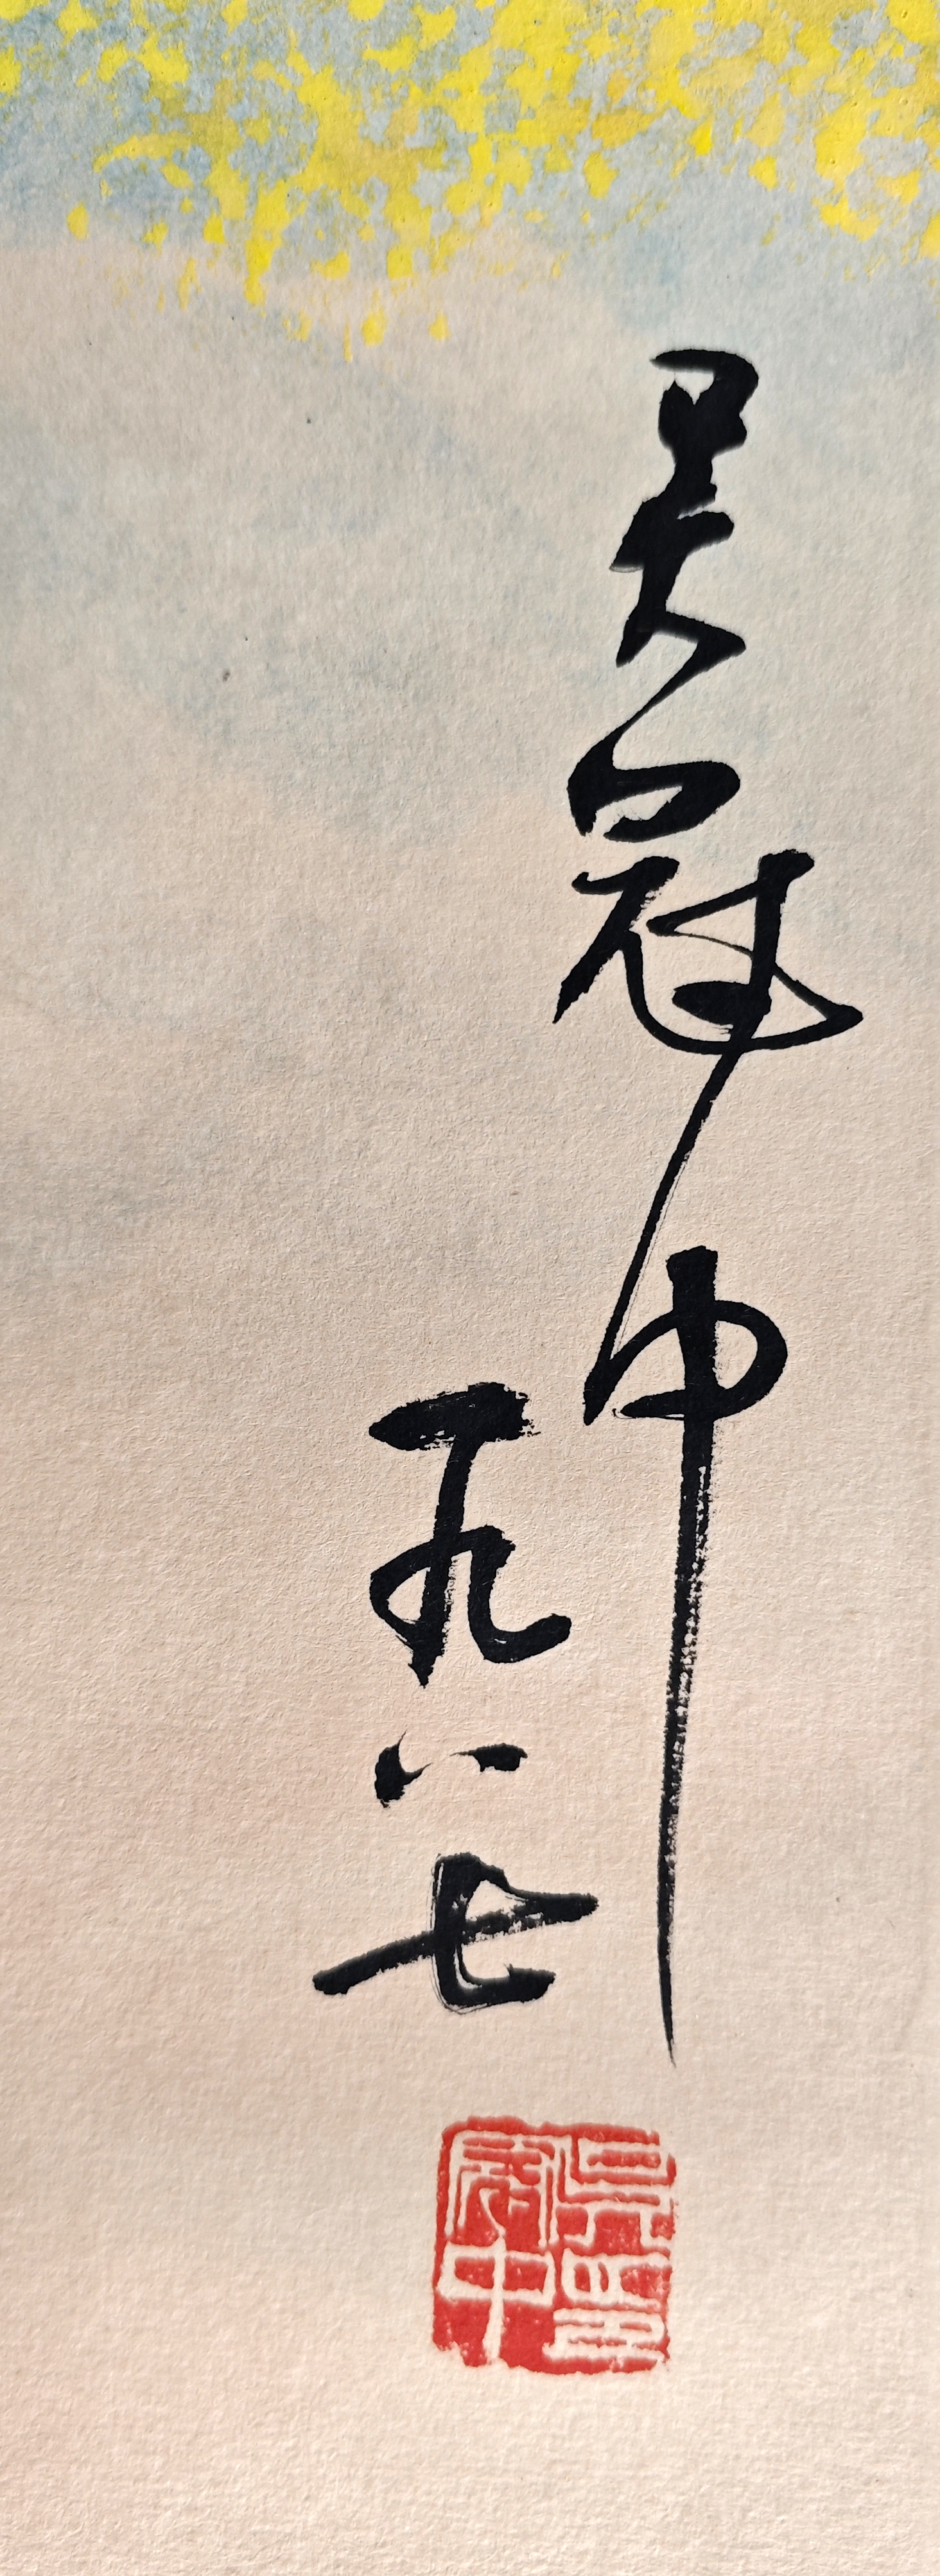 吴冠中
一九八七
吴冠中印